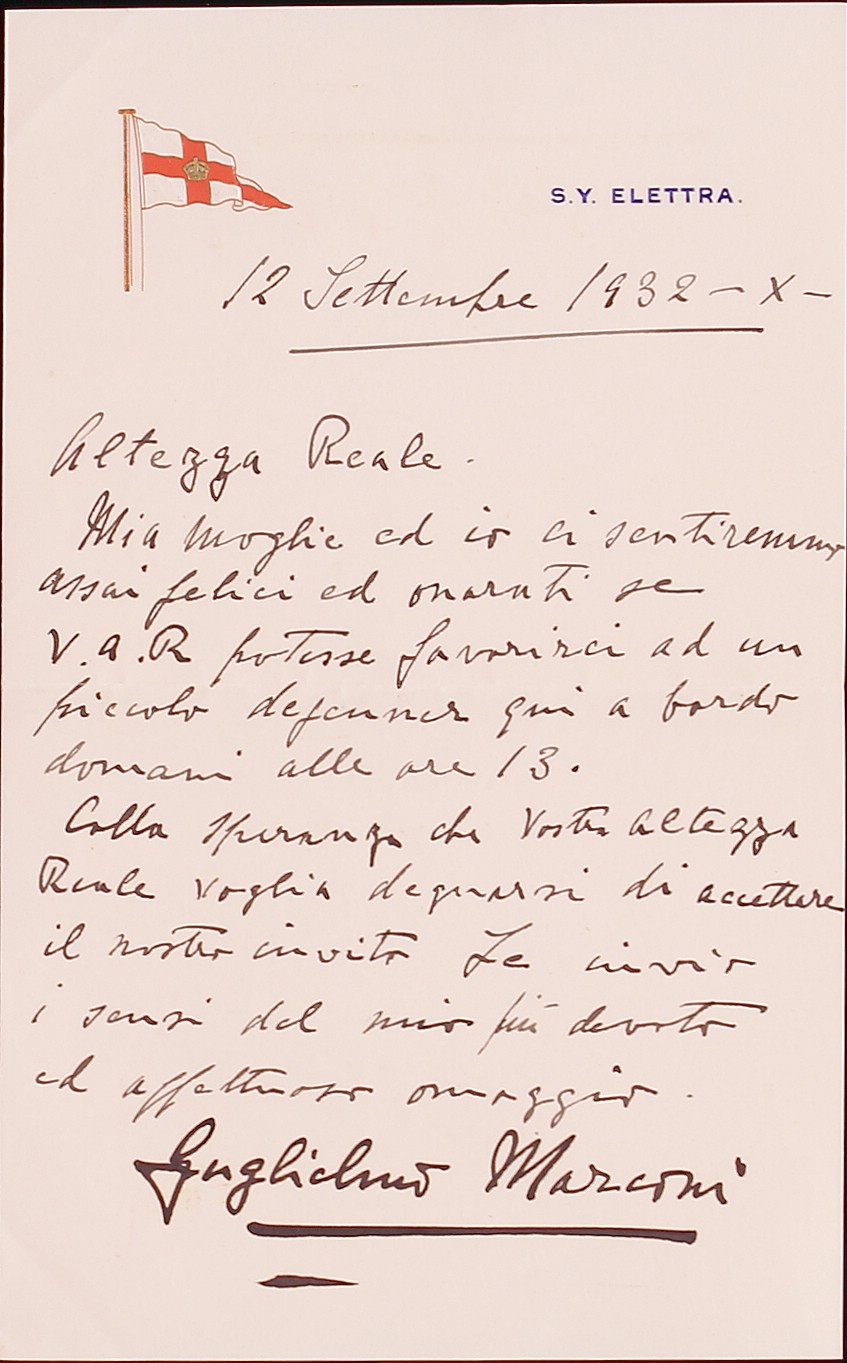 S.Y. ELETTRA.
12 Settembre 1932 – X –
Altezza Reale.
Mia moglie ed io ci sentiremmo
assai felici ed onorati se
V.A.R potesse favorirci ad un
piccolo dejeuner qui a bordo
domani alle ore 13.
Colla speranza che Vostra Altezza
Reale voglia degnarsi di accettare
il nostro invito Le invio
i sensi del mio più devoto
ed affettuoso omaggio.
Guglielmo Marconi